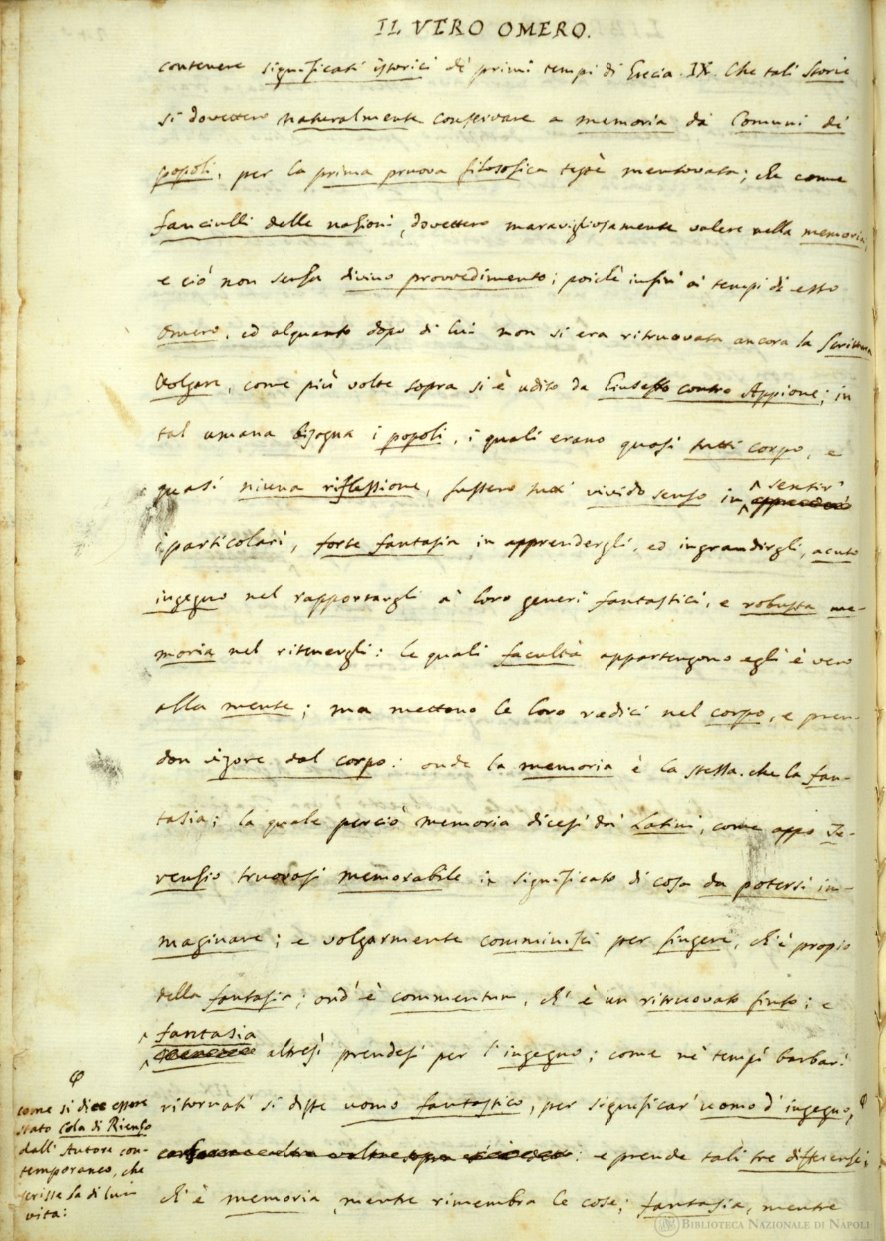 IL VERO OMERO.
contenere significati istorici de' primi tempi di Grecia. IX. Che tali Storie
si dovettero naturalmente conservare a memoria da' Comuni de'
popoli, per la prima pruova filosofica testè mentovata; che come
fanciulli delle nazioni, dovettero maravigliosamente valere nella memoria;
e ciò non senza divino provvedimento; poichè infin' a' tempi di esso
Omero, ed alquanto dopo di lui non si era ritruovata ancora la Scrittura
Volgare, come più volte sopra si è udito da Giuseffo contro Appione; in
tal umana bisogna i popoli, i quali erano quasi tutti corpo, e
quasi niuna riflessione, fussero tutti vivido senso in sentir'
i particolari, forte fantasia in apprendergli, ed ingrandirgli, acuto
ingegno nel rapportargli a' loro generi fantastici, e robusta me-
moria nel ritenergli: le quali facultà appartengono egli è vero
alla mente; ma mettono le loro radici nel corpo, e pren-
don vigore dal corpo: onde la memoria è la stessa, che la fan-
tasia; la quale perciò memoria dicesi da' Latini, come appo Te-
renzio truovasi memorabile in significato di cosa da potersi im-
maginare; e volgarmente comminisci per fingere, ch'è propio
della fantasia; ond' è commentum, ch' è un ritruovato finto; e
fantasia altresì prendesi per l'ingegno; come ne' tempi barbari
ritornati si disse uomo fantastico, per significar' uomo d' ingegno, φ
: e prende tali tre differenze;
ch' è memoria, mentre rimembra le cose; fantasia, mentre
φ
come si dice essere
stato Cola di Rienzo
dall' Autore con-
temporaneo, che
scrisse la di lui
vita:
BIBLIOTECA NAZIONALE DI NAPOLI